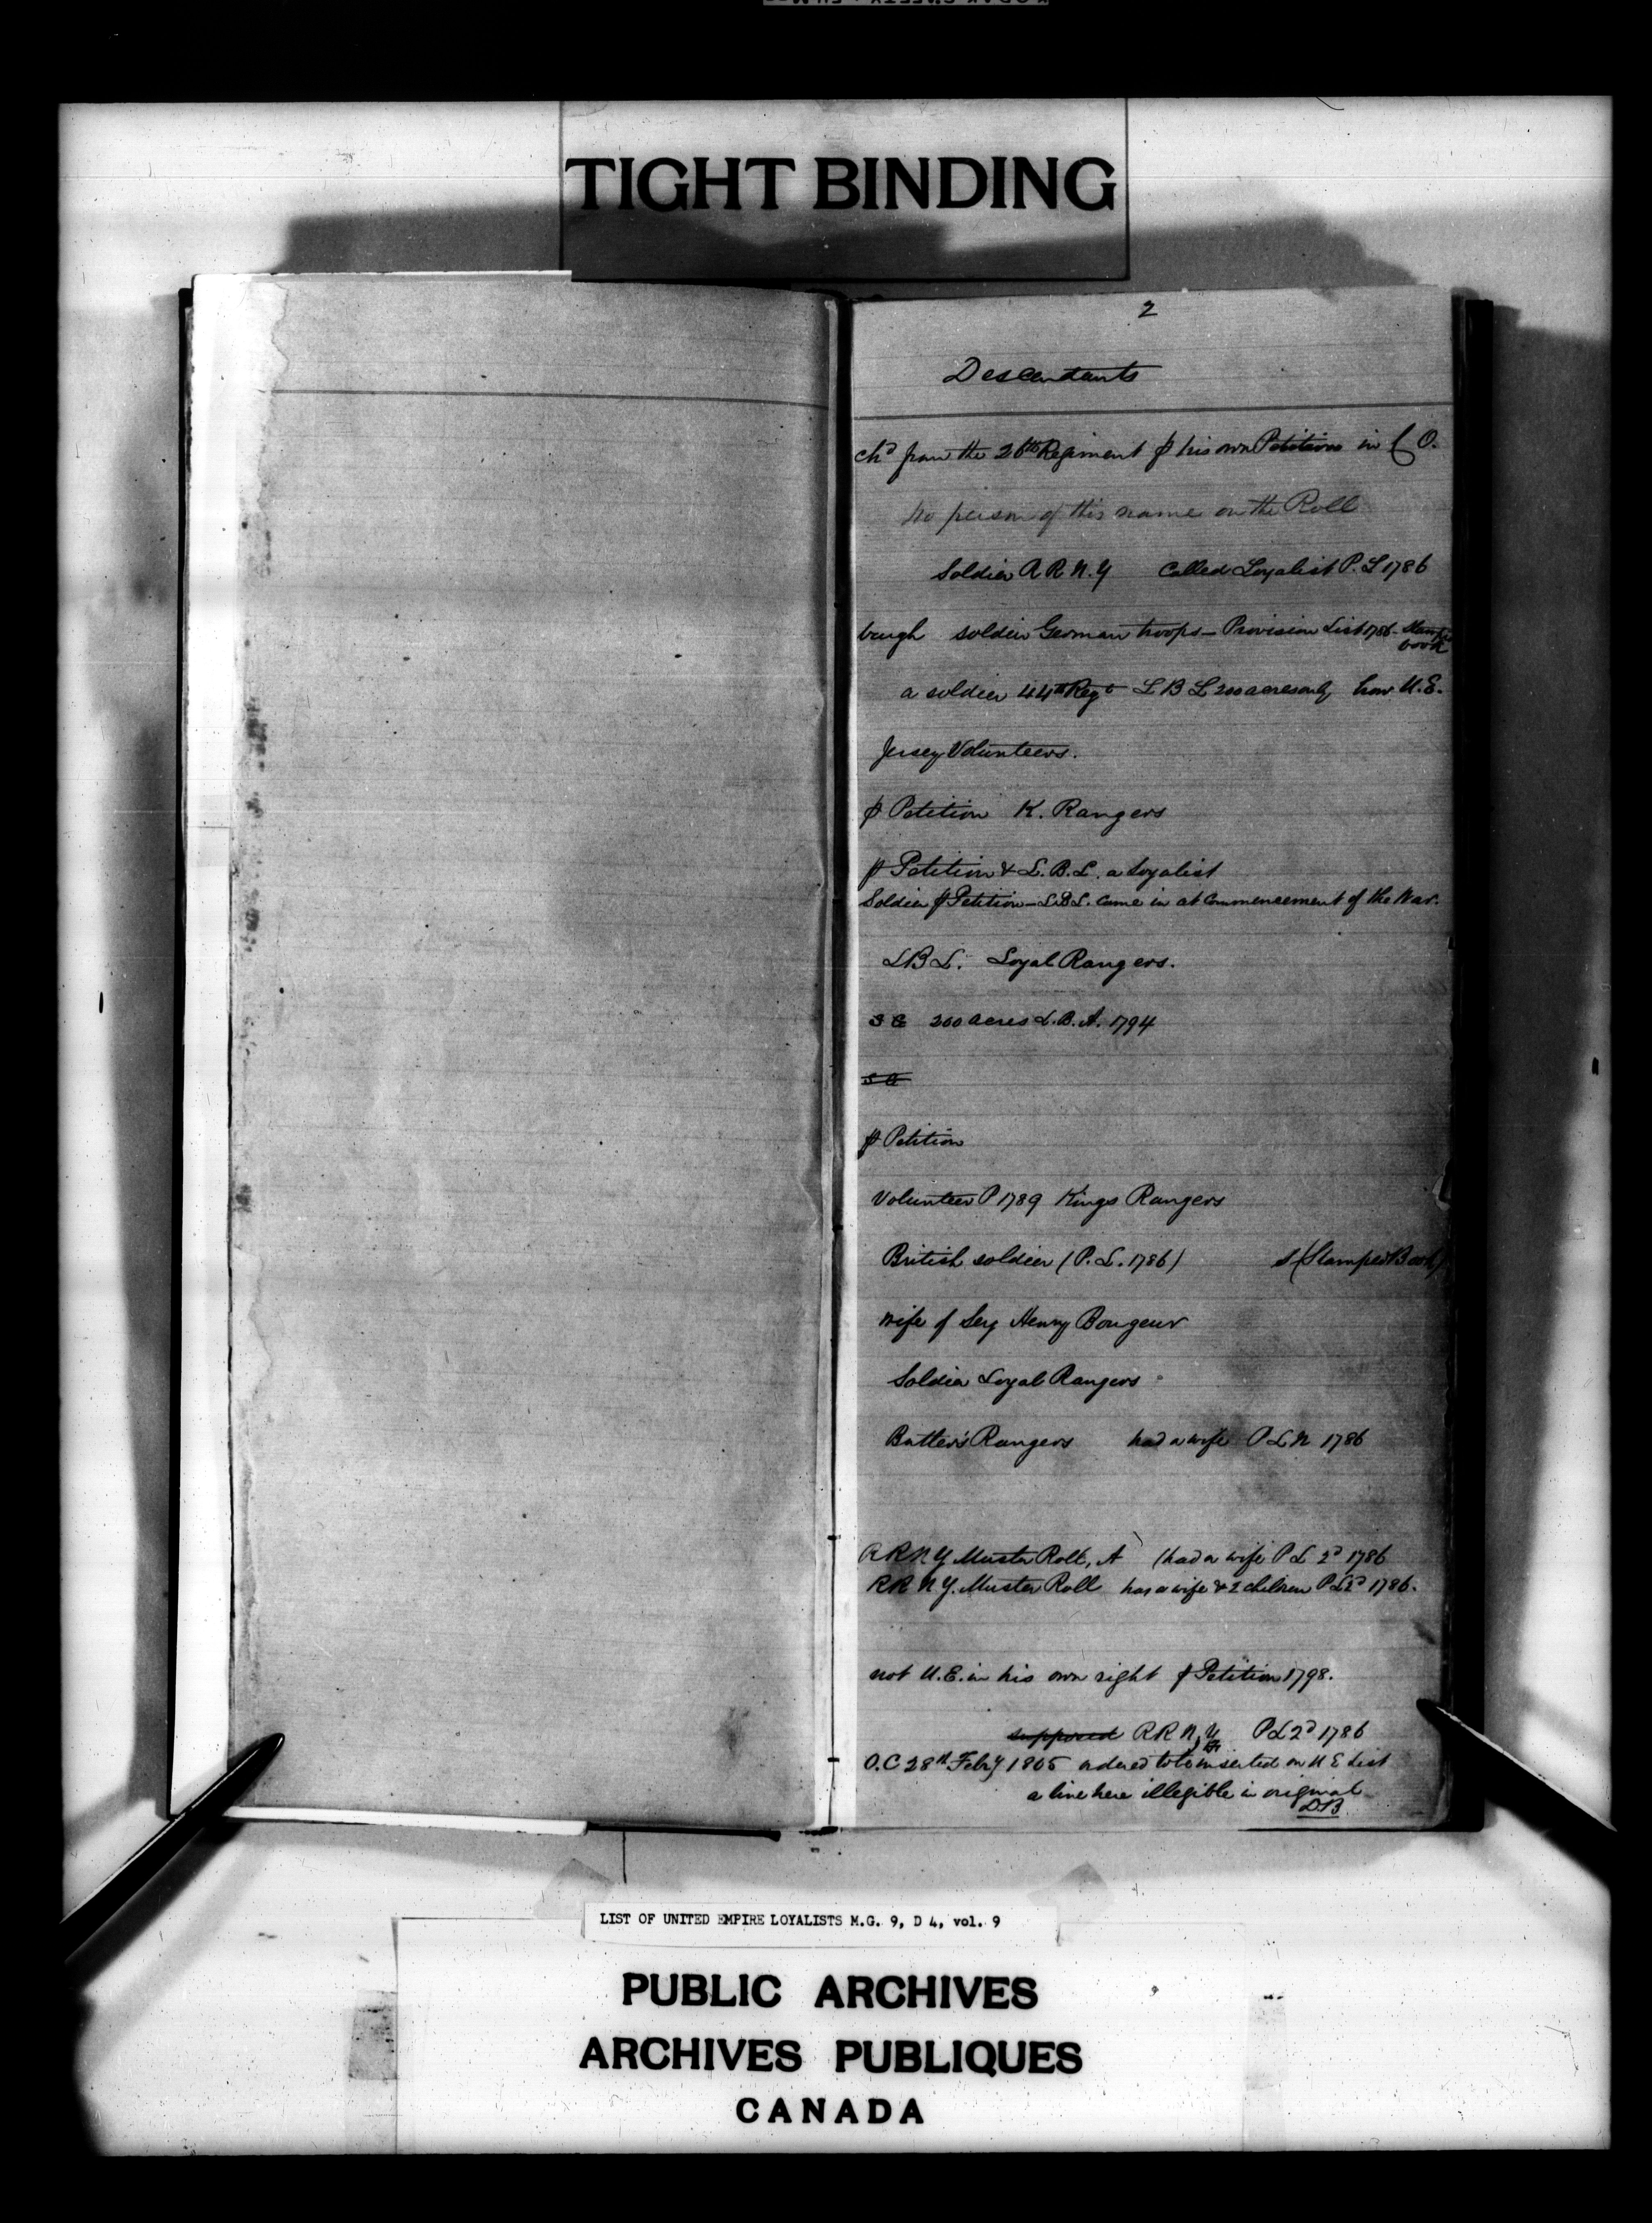 TIGHT BINDING
2
Descendants
chd from the 26th Regiment p his own Petition in C O.
No person of this name on the Roll
Soldier R R N.Y Called Loyalist P. L 1786
baugh soldier German troops - Provision List 1786 - Stamped
book
a soldier 44th Regt L B L 200 acres only how U.E.
Jersey Volunteers.
p Petition K. Rangers
p Petition & L.B.L. a Loyalist
Soldier p Petition - L.B.L. came in at commencement of the War.
L B L. Loyal Rangers.
200 acres L.B.A. 1794
p Petition
Volunteer P 1789 Kings Rangers
British soldier (P.L. 1786) s (Stamped Book)
wife of Serg Henry Bongeur
Soldier Loyal Rangers
Butler's Rangers had a wife P L N 1786
R R N Y Muster Roll, A (had a wife P L 2d 1786
R R N Y. Muster Roll has a wife & 2 children P L 2d 1786.
not U.E. in his own right p Petition 1798.
supposed R R N Y P L 2d 1786
O.C 28th Feby 1805 ordered to be inserted on U E List
a line here illegible in original
DB
LIST OF UNITED EMPIRE LOYALISTS M.G. 9, D 4, vol. 9
PUBLIC ARCHIVES
ARCHIVES PUBLIQUES
CANADA